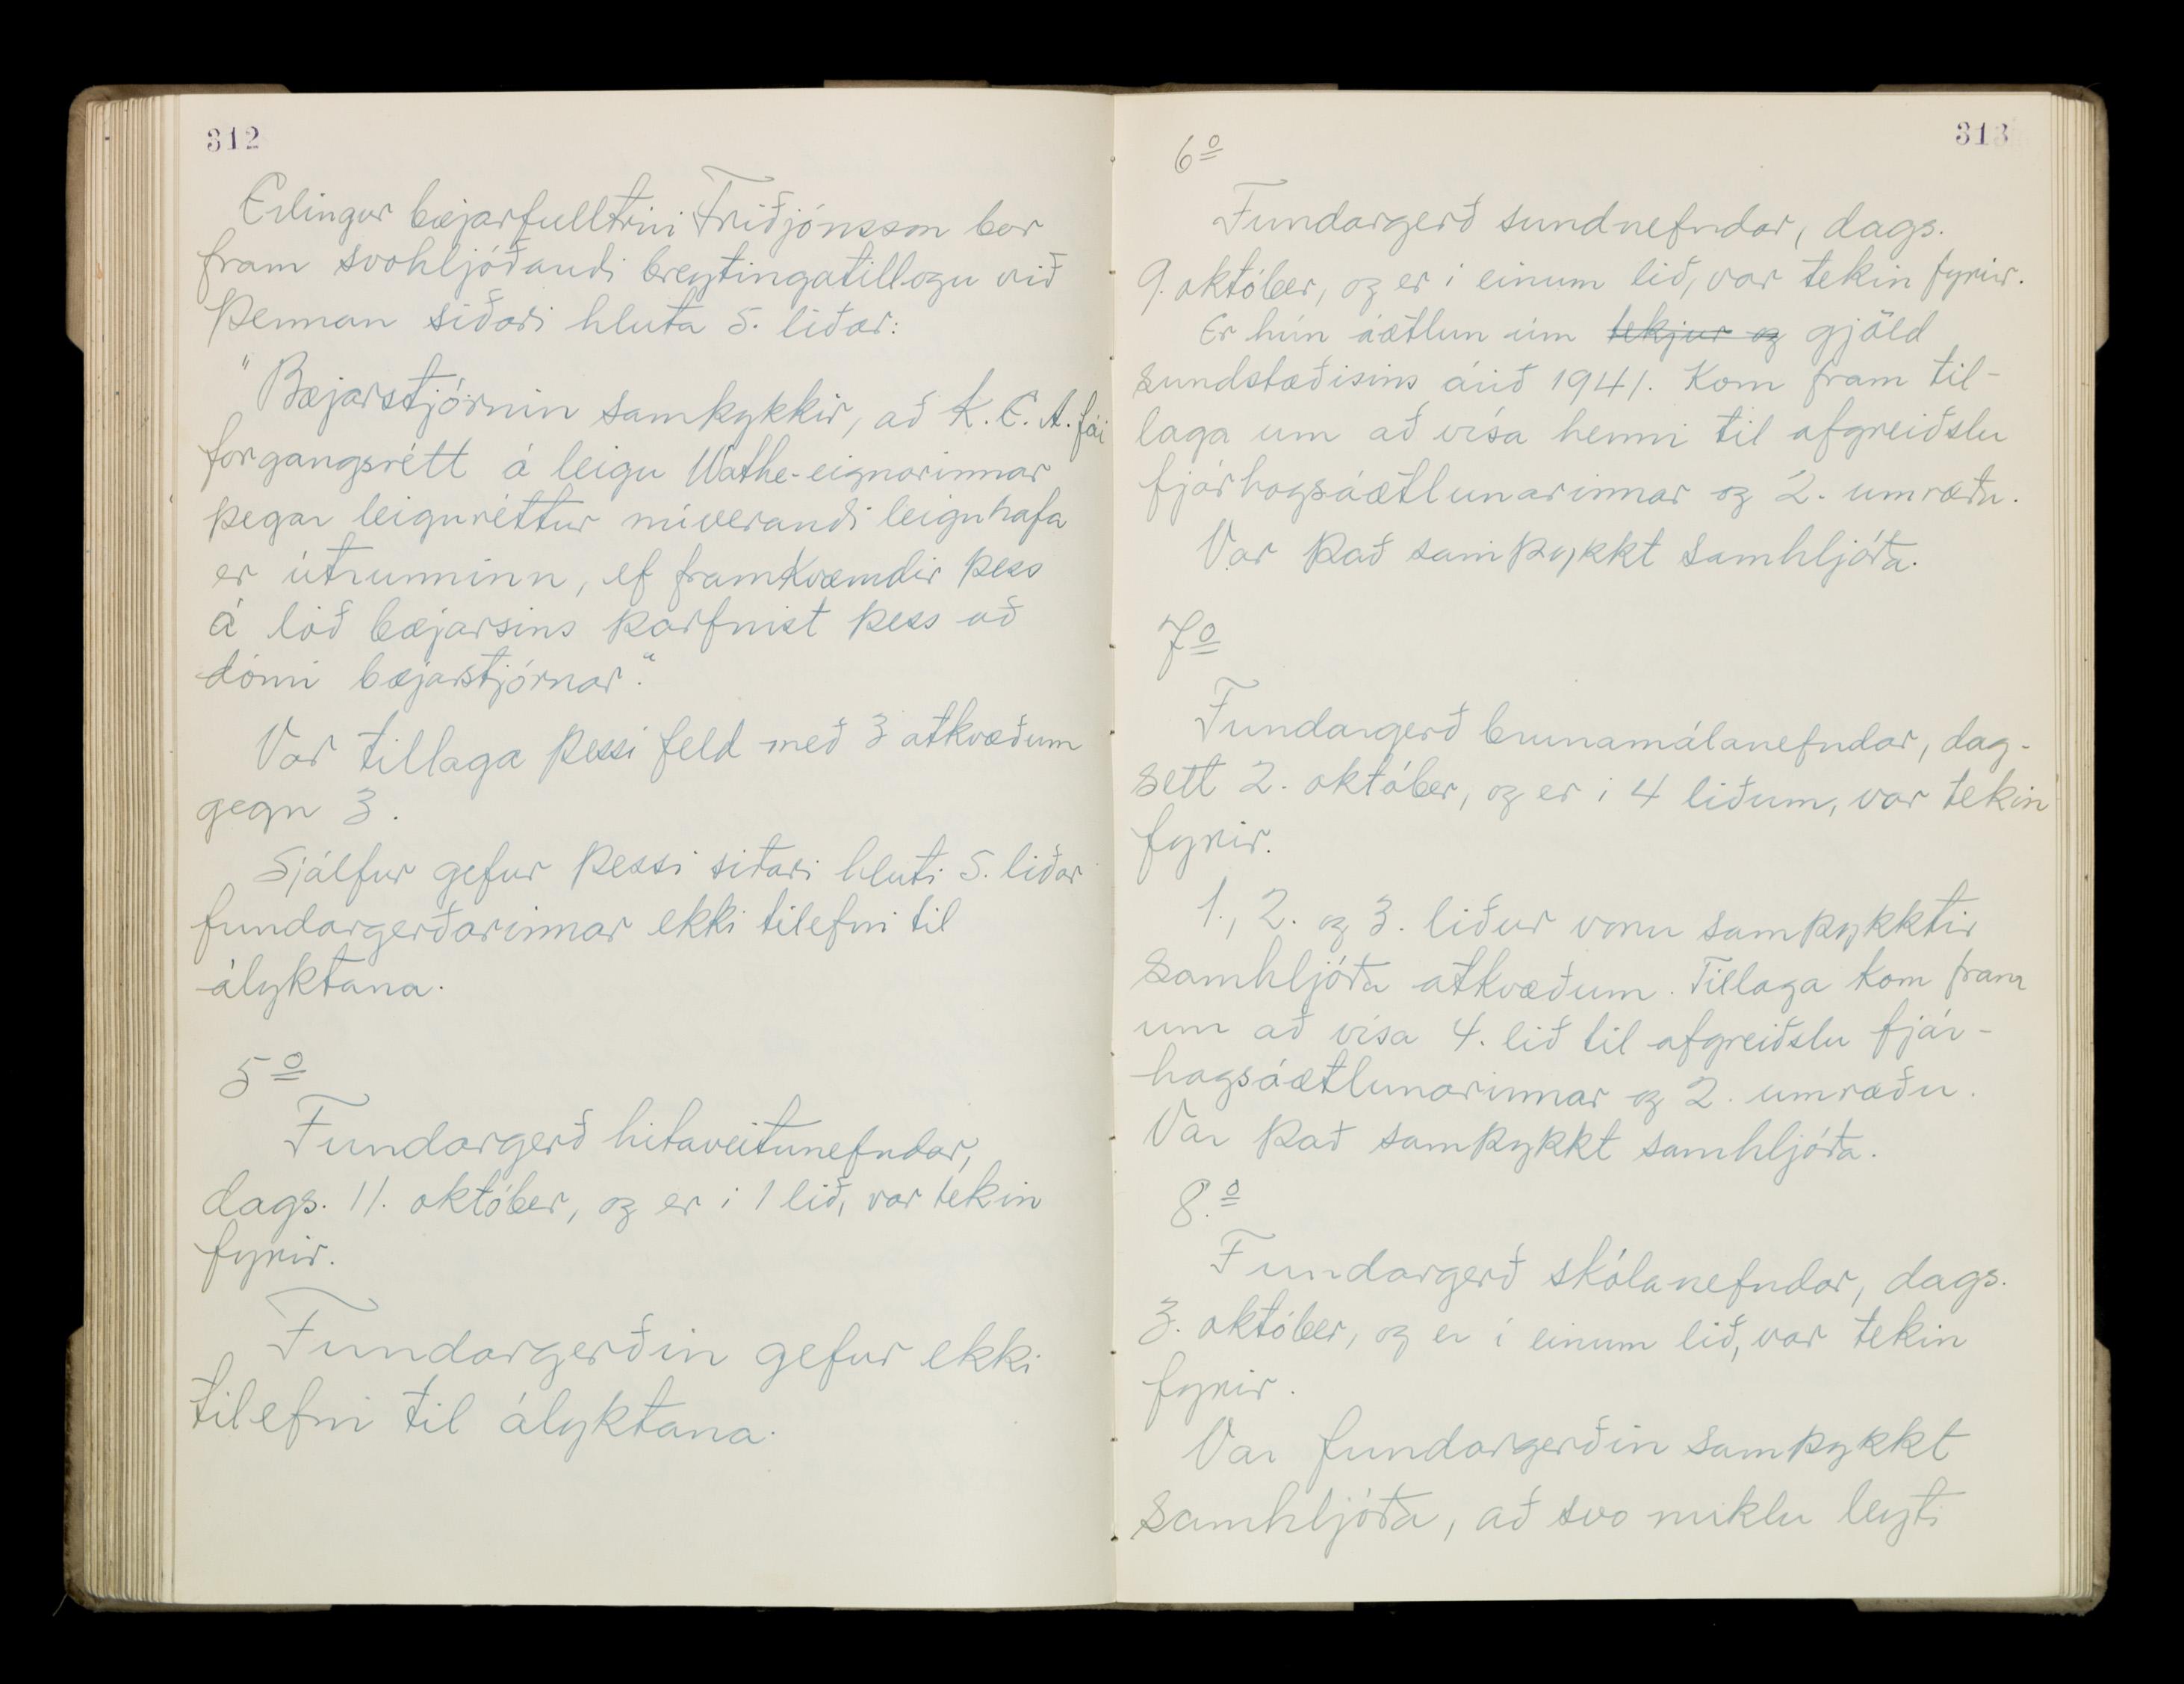 312
Erlingur bæjarfulltrúi Friðjónsson bar
fram svohljóðandi breytingatillögu við
þennan síðari hluta 5. liðar:
"Bæjarstjórnin samþykkir, að K.E.A. fái
forgangsrétt á leigu Wathe-eignarinnar
þegar leiguréttur núverandi leiguhafa
er útrunninn, ef framkvæmdir þess
á lóð bæjarsins þarfnist þess að
dómi bæjarstjórnar."
Var tillaga þessi feld með 3 atkvæðum
gegn 3.
Sjálfur gefur þessi síðari hluti 5. liðar
fundargerðarinnar ekki tilefni til
ályktana.
5º
Fundargerð hitaveitunefndar,
dags. 11. október, og er í 1 lið, var tekin
fyrir.
Fundargerðin gefur ekki
tilefni til ályktana.
313
6º
Fundargerð sundnefndar, dags.
9. október, og er í einum lið, var tekin fyrir.
Er hún áætlun um tekjur og gjöld
sundstæðisins árið 1941. Kom fram til-
laga um að vísa henni til afgreiðslu
fjárhagsáætlunarinnar og 2. umræðu.
Var það samþykkt samhljóða.
7º
Fundargerð brunamálanefndar, dag-
sett 2. október, og er í 4 liðum, var tekin
fyrir.
1., 2. og 3. liður voru samþykktir
samhljóða atkvæðum. Tillaga kom fram
um að vísa 4. lið til afgreiðslu fjár-
hagsáætlunarinnar og 2. umræðu.
Var það samþykkt samhljóða.
8.º
Fundargerð skólanefndar, dags.
3. október, og er í einum lið, var tekin
fyrir.
Var fundargerðin samþykkt
samhljóða, að svo miklu leyti